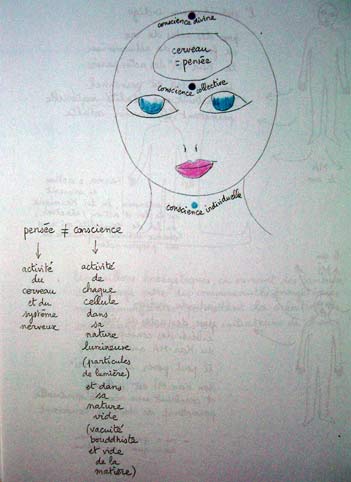 conscience divine
cerveau
= pensée
conscience collective
conscience individuelle
pensée ≠ conscience
activité
du
cerveau
et du
système
nerveux
activité
de
chaque
cellule
dans
sa
nature
lumineuse
(particules
de lumière)
et dans
sa
nature
vide
(vacuité
bouddhiste
et vide
de la
matière)